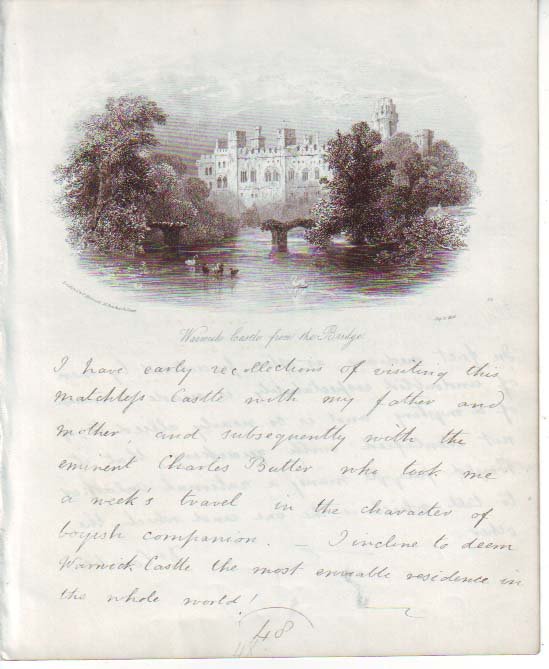 Warwick Castle from the Bridge
I have early recollections of visiting this
matchless Castle with my father and
mother, and subsequently with the
eminent Charles Butler who took me
a week's travel in the character of
boyish companion. — I incline to deem
Warwick Castle the most enviable residence in
the whole world!
48